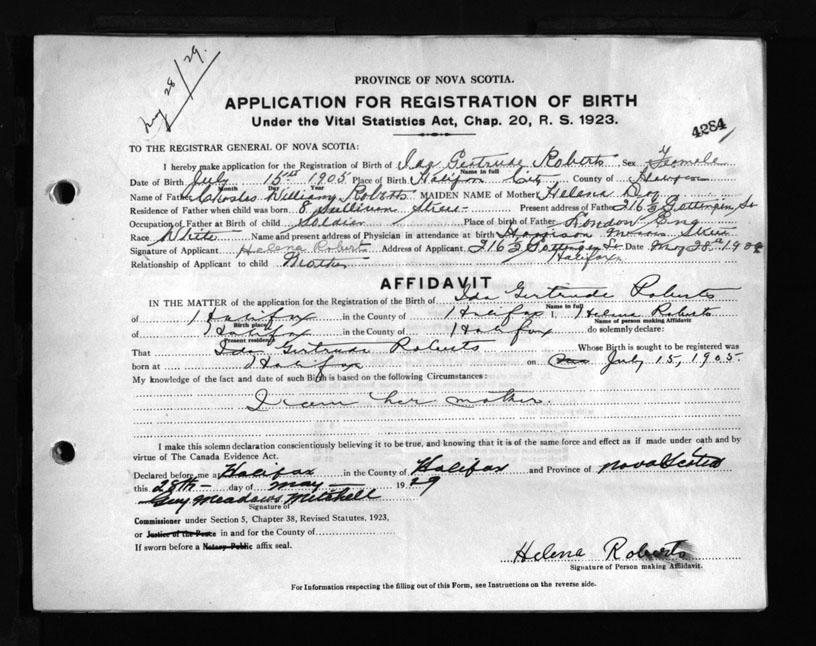 May 28/29.
PROVINCE OF NOVA SCOTIA.
APPLICATION FOR REGISTRATION OF BIRTH
Under the Vital Statistics Act, Chap. 20, R. S. 1923.
4284
TO THE REGISTRAR GENERAL OF NOVA SCOTIA:
I hereby make application for the Registration of Birth of Ida Gertrude Roberts Sex Female
Name in full
Date of Birth July 15th 1905 Place of Birth Halifax City County of Halifax
Month Day Year
Name of Father Charles William Roberts MAIDEN NAME of Mother Helena
Residence of Father when child was born 8 Sullivan Street Present address of Father 216 Gottingen St
Occupation of Father at Birth of child Soldier Place of birth of Father London Eng
Race White Name and present address of Physician in attendance at birth
Signature of Applicant Helena Robert Address of Applicant 216 Gottingen St. Date May 28th
Halifax
Relationship of Applicant to child Mother
AFFIDAVIT
IN THE MATTER of the application for the Registration of the Birth of Ida Gertrude Roberts
Name in full
of Halifax in the County of Halifax I, Helena Roberts
Birth place Name of person making Affidavit
of Halifax in the County of Halifax do solemnly declare:
Present residence
That Ida Gertrude Roberts Whose Birth is sought to be registered was
born at Halifax on July 15, 1905
My knowledge of the fact and date of such Birth is based on the following Circumstances:
I am her mother.
I make this solemn declaration conscientiously believing it to be true, and knowing that it is of the same force and effect as if made under oath and by
virtue of The Canada Evidence Act.
Declared before me at Halifax in the County of Halifax and Province of Nova Scotia
this 28th day of May 1929
Guy Meadows Mitchell
Signature of
Commissioner under Section 5, Chapter 38, Revised Statutes, 1923,
or Justice of the Peace in and for the County of
If sworn before a Notary Public affix seal.
Helena Roberts
Signature of Person making Affidavit.
For Information respecting the filling out of this Form, see Instructions on the reverse side.